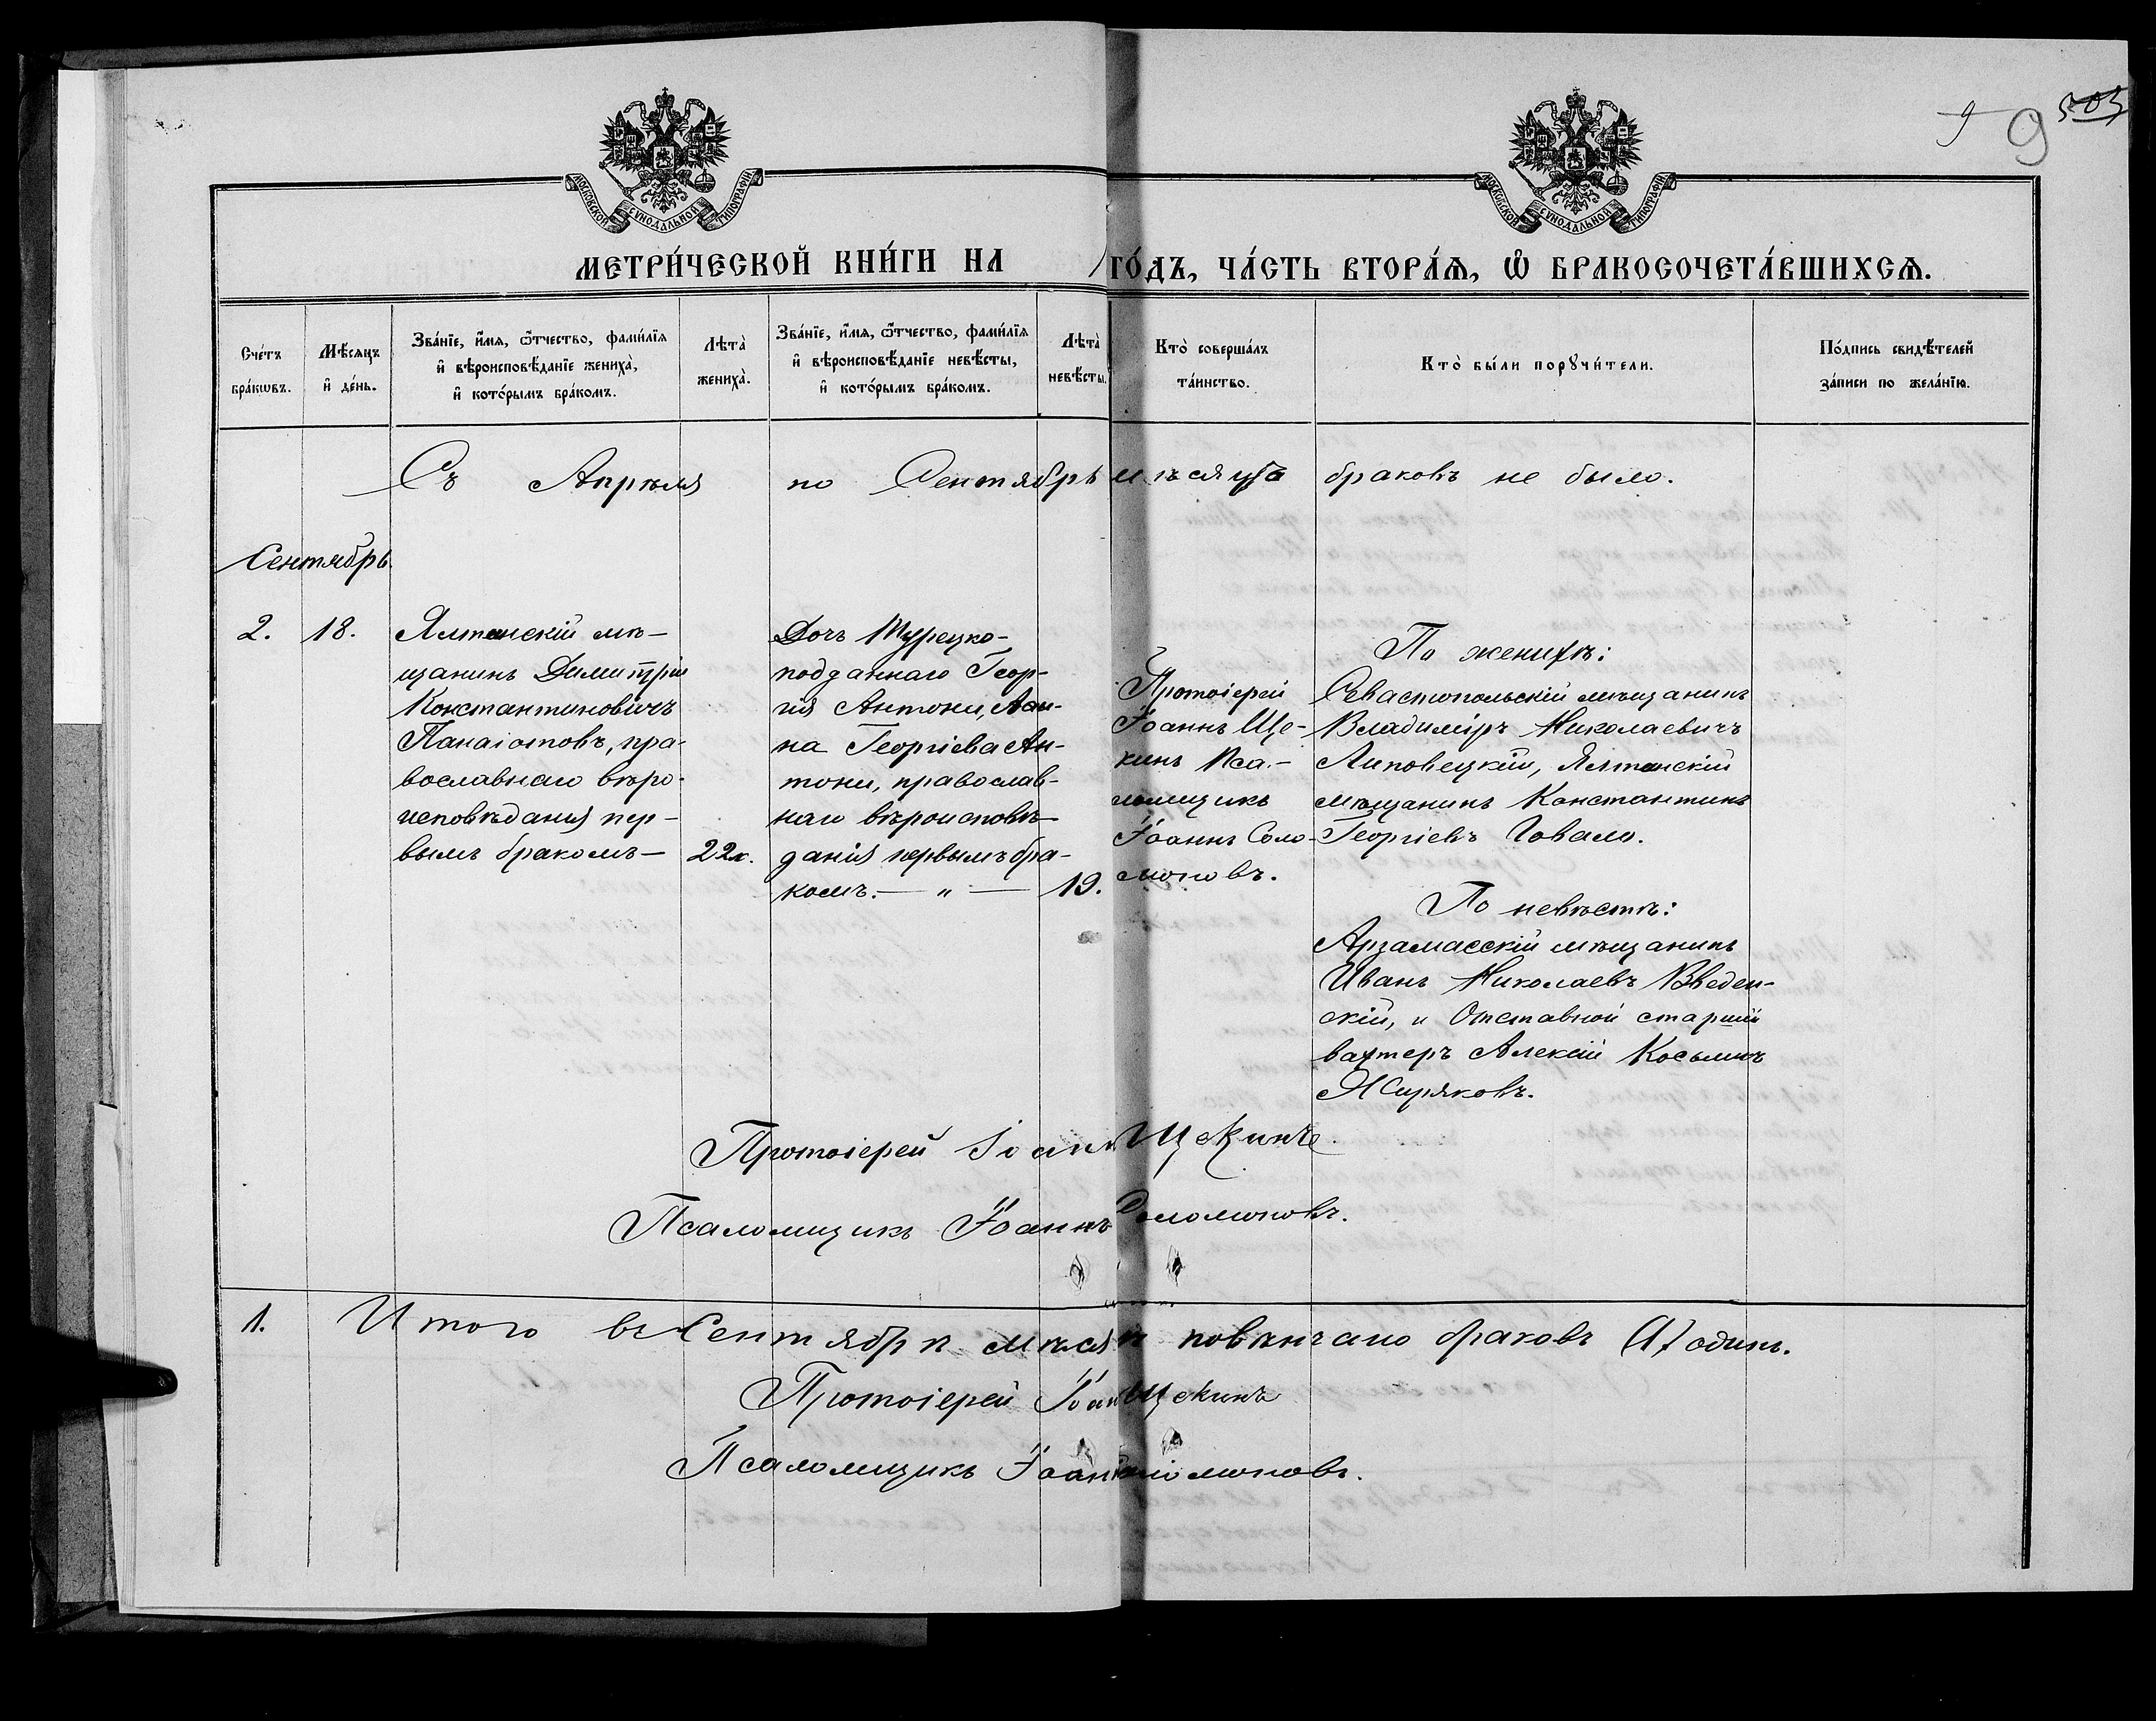 МОСКОВСКОЙ СѴНОДАЛЬНОЙ ТИПОГРАФІИ
МОСКОВСКОЙ СѴНОДАЛЬНОЙ ТИПОГРАФІИ
9
МЕТРИ́ЧЕСКОЙ КНИ́ГИ НА ГО́ДЪ, ЧА́СТЬ ВТОРА́Ѧ, Ѽ БРАКОСОЧЕТА́ВШИХСѦ.
Сче́тъ бра́кѡвъ.
Мѣ́сяцъ и҆ де́нь.
Зва́нїе, и҆́мѧ, ѻ҆́тчество, фами́лїѧ и҆ вѣроисповѣ́данїе жениха̀, и҆ кото́рымъ бра́комъ.
Лѣта̀ жениха̀.
Зва́нїе, и҆́мѧ, ѻ҆́тчество, фами́лїѧ и҆ вѣроисповѣ́данїе невѣ́сты, и҆ кото́рымъ бра́комъ.
Лѣта̀ невѣ́сты.
Кто̀ соверша́лъ та́инство.
Кто̀ бы́ли порꙋчи́тели.
По́дпись свидѣ́телей за́писи по жела́нїю.
Съ Апрѣля по Сентябрь мѣсяцъ браковъ не было.
Сентябрь
2. 18.
Ялтинскій мѣ-
щанинъ Димитрій
Константиновичъ
Панаіотовъ, пра-
вославнаго вѣро-
исповѣданія пер-
вымъ бракомъ —
22л.
Дочь Турецко-
подданнаго Геор-
гія Антони, Ан-
на Георгіева Ан-
тони, православ-
наго вѣроисповѣ-
данія первымъ бра-
комъ. — „ —
19.
Протоіерей
Іоаннъ Ще-
кинъ Пса-
ломщикъ
Іоаннъ Соло-
моновъ.
По женихѣ:
Севастопольскій мѣщанинъ
Владиміръ Николаевичъ
Липовецкій, Ялтинскій
мѣщанинъ Константинъ
Георгіевъ Говало.
По невѣстѣ:
Арзамасскій мѣщанинъ
Иванъ Николаевъ Введен-
скій, и Отставной старшій
вахтеръ Алексій Косьминъ
Жиряковъ.
Протоіерей Іоаннъ Щекинъ
Псаломщикъ Іоаннъ Соломоновъ.
1. Итого въ Сентябрѣ мѣсяцѣ повѣнчано браковъ (1) одинъ.
Протоіерей Іоаннъ Щекинъ
Псаломщикъ Іоаннъ Соломоновъ.